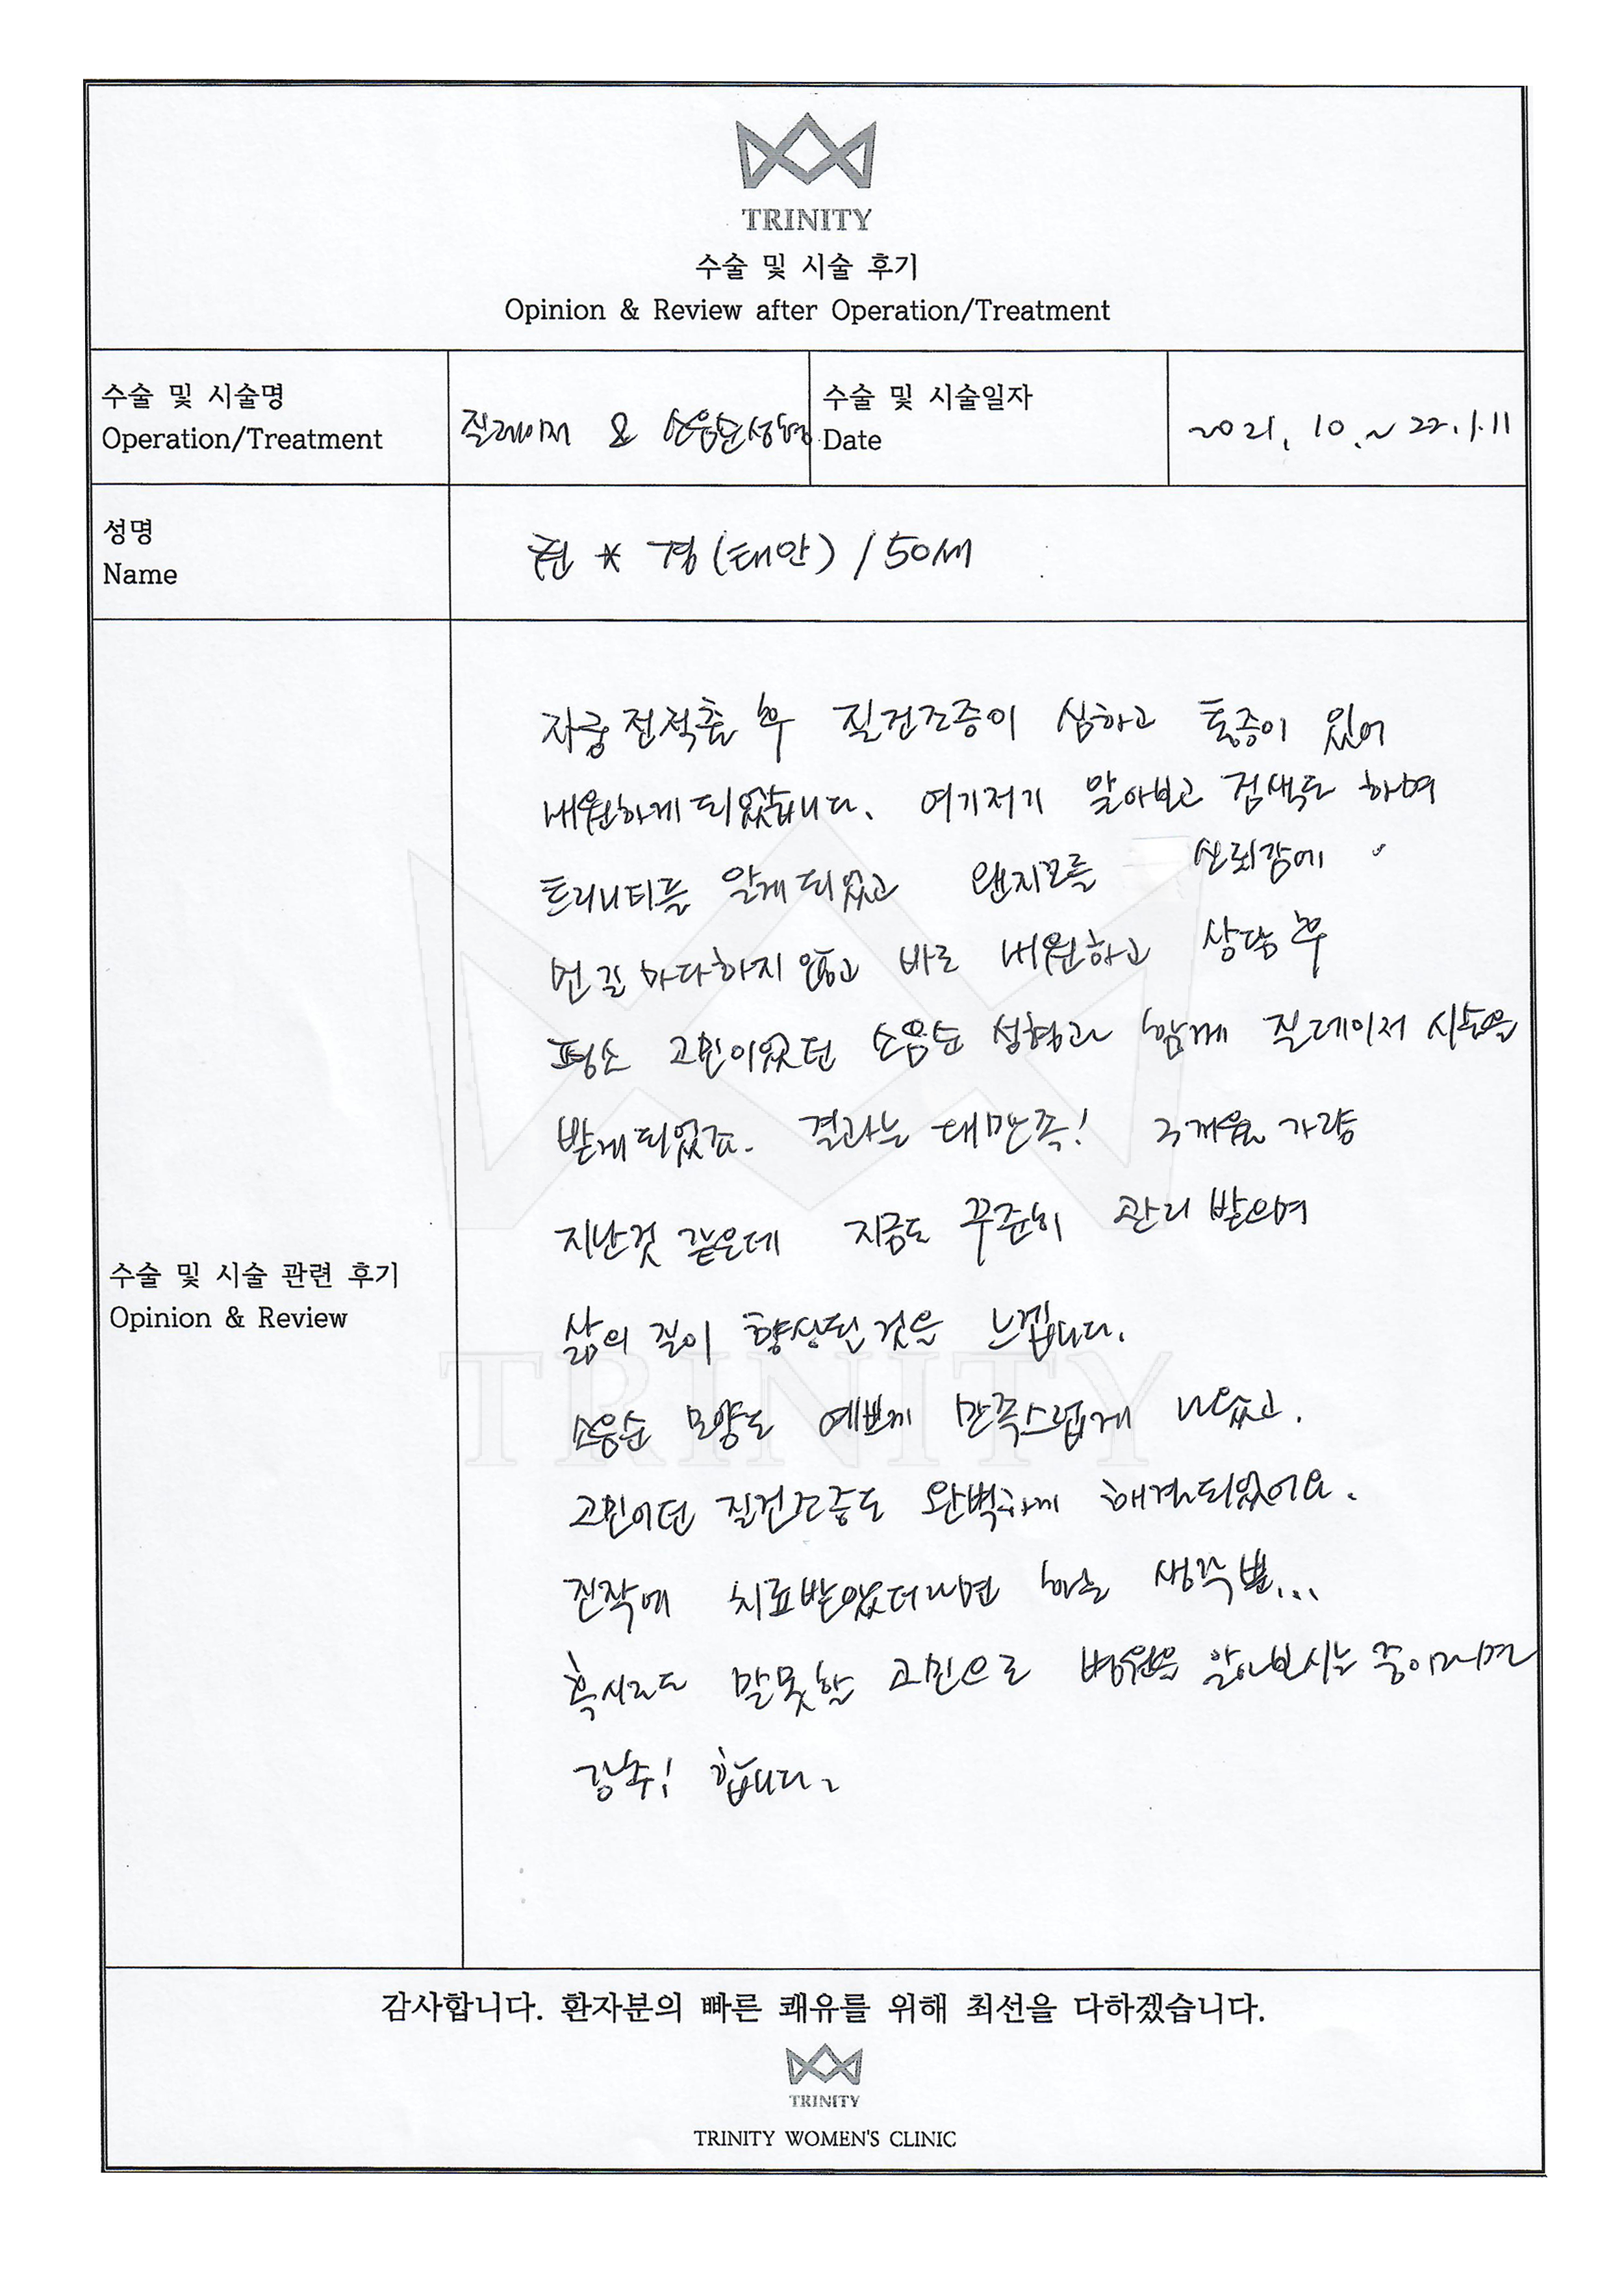 TRINITY
수술 및 시술 후기
Opinion & Review after Operation/Treatment
수술 및 시술명
Operation/Treatment
질레이저 & 소음순성형
수술 및 시술일자
Date
2021. 10. ~ 22.1.11
성명
Name
권 * 경 (태안) / 50세
자궁 전적출 후 질건조증이 심하고 통증이 있어
내원하게 되었습니다. 여기저기 알아보고 검색도 하며
트리니티를 알게 되었고 왠지모를 신뢰감에
먼 길 마다하지 않고 바로 내원하고 상담 후
평소 고민이었던 소음순 성형과 함께 질레이저 시술을
받게 되었죠. 결과는 대만족! 3개월 가량
지난것 같은데 지금도 꾸준히 관리 받으며
삶의 질이 향상된 것을 느낍니다.
소음순 모양도 예쁘게 만족스럽게 나왔고.
고민이던 질건조증도 완벽하게 해결되었어요.
진작에 치료받았더라면 하는 생각뿐...
혹시라도 말못할 고민으로 병원을 알아보시는 중이라면
강추! 합니다.
수술 및 시술 관련 후기
Opinion & Review
TRINITY
감사합니다. 환자분의 빠른 쾌유를 위해 최선을 다하겠습니다.
TRINITY
TRINITY WOMEN'S CLINIC